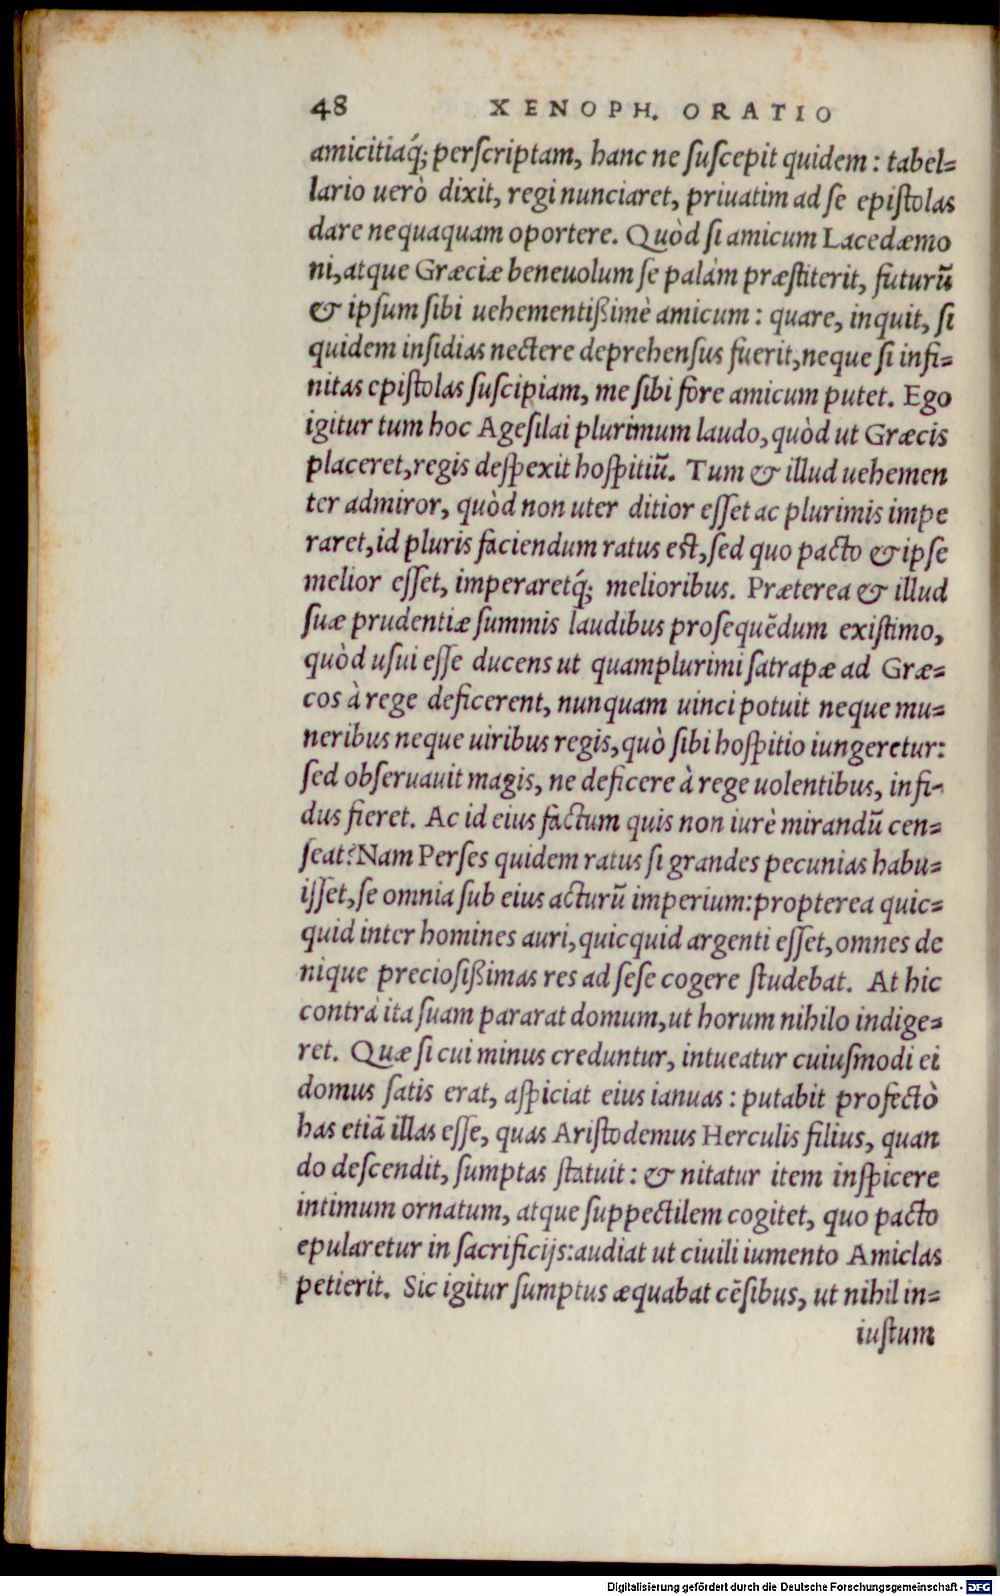 48 XENOPH. ORATIO
amicitiaq́; perſcriptam, hanc ne ſuſcepit quidem: tabel=
lario uerò dixit, regi nunciaret, priuatim ad ſe epiſtolas
dare nequaquam oportere. Quòd ſi amicum Lacedæmo
ni, atque Græciæ beneuolum ſe palàm præſtiterit, futurū
& ipſum ſibi uehementißimè amicum: quare, inquit, ſi
quidem inſidias nectere deprehenſus fuerit, neque ſi infi=
nitas epiſtolas ſuſcipiam, me ſibi fore amicum putet. Ego
igitur tum hoc Ageſilai plurimum laudo, quòd ut Græcis
placeret, regis deſpexit hoſpitiū. Tum & illud uehemen
ter admiror, quòd non uter ditior eſſet ac plurimis impe
raret, id pluris faciendum ratus eſt, ſed quo pacto & ipſe
melior eſſet, imperaretq́; melioribus. Præterea & illud
ſuæ prudentiæ ſummis laudibus proſequēdum exiſtimo,
quòd uſui eſſe ducens ut quamplurimi ſatrapæ ad Græ=
cos à rege deficerent, nunquam uinci potuit neque mu=
neribus neque uiribus regis, quò ſibi hoſpitio iungeretur:
ſed obſeruauit magis, ne deficere à rege uolentibus, infi-
dus fieret. Ac id eius factum quis non iurè mirandū cen=
ſeat? Nam Perſes quidem ratus ſi grandes pecunias habu=
iſſet, ſe omnia ſub eius acturū imperium: propterea quic=
quid inter homines auri, quicquid argenti eſſet, omnes de
nique precioſißimas res ad ſeſe cogere ſtudebat. At hic
contrà ita ſuam pararat domum, ut horum nihilo indige=
ret. Quæ ſi cui minus creduntur, intueatur cuiuſmodi ei
domus ſatis erat, aſpiciat eius ianuas: putabit profectò
has etiā illas eſſe, quas Ariſtodemus Herculis filius, quan
do deſcendit, ſumptas ſtatuit: & nitatur item inſpicere
intimum ornatum, atque ſuppectilem cogitet, quo pacto
epularetur in ſacrificijs: audiat ut ciuili iumento Amiclas
petierit. Sic igitur ſumptus æquabat cēſibus, ut nihil in=
iuſtum
Digitalisierung gefördert durch die Deutsche Forschungsgemeinschaft - DFG